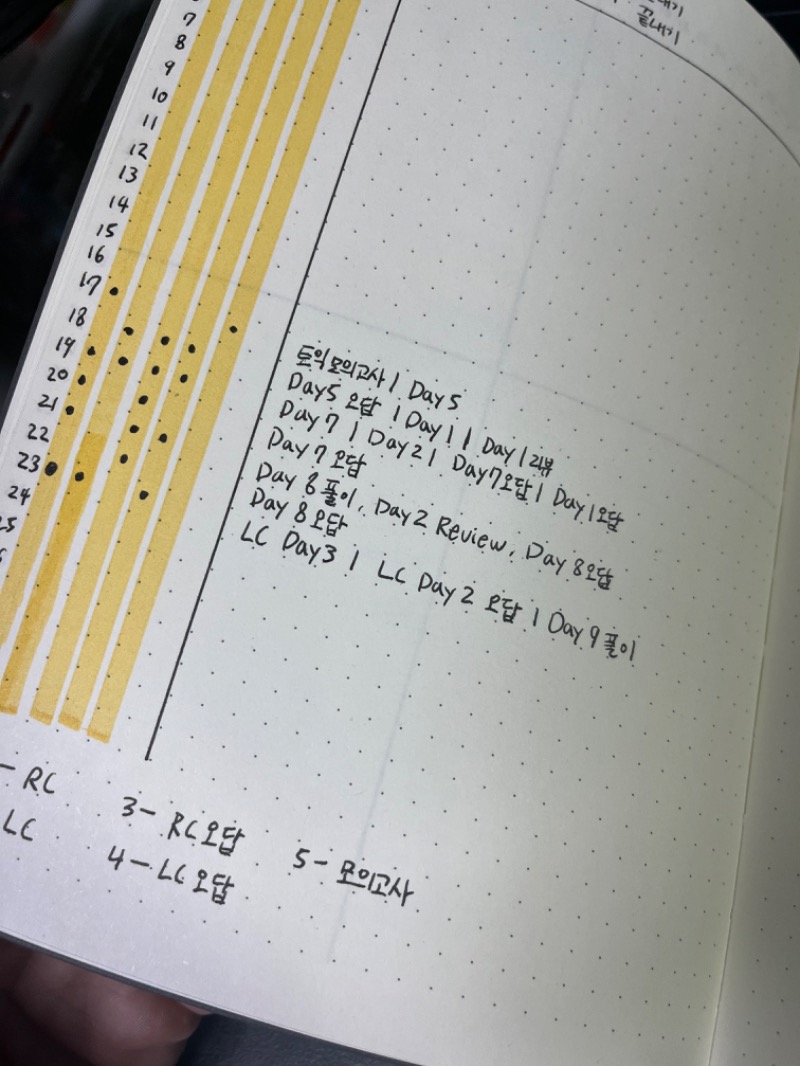 끝내기
7
8
9
10
11
12
13
14
15
16
17
18
19
20
21
22
23
24
25
토익모의고사 | Day 5
Day5 오답 | Day 1 | Day 1 리뷰
Day 7 | Day 2 | Day 7오답 | Day 1 오답
Day 7 오답
Day 8 풀이, Day 2 Review, Day 8오답
Day 8 오답
LC Day3 | LC Day 2 오답 | Day 9 풀이
- RC
LC
3 - RC오답
4 - LC 오답
5 - 모의고사